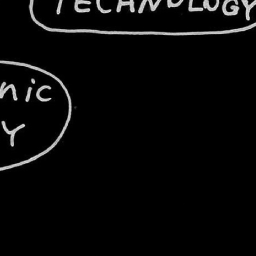 TECHNOLOGY
nic
Y